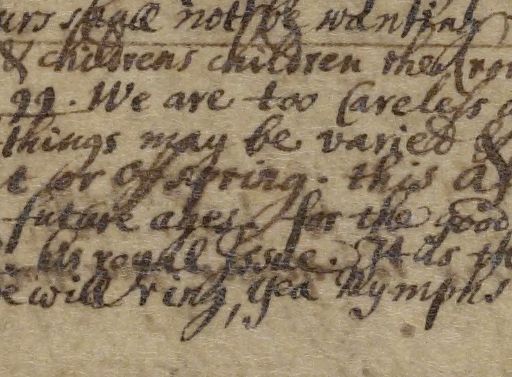 urs shall not be wanting
& childrens children they
99. We are too Careless
things may be varied &
t or Offspring. this
future ages. for the good
his royal Issue. It is th
e will ring, yea Nymphs